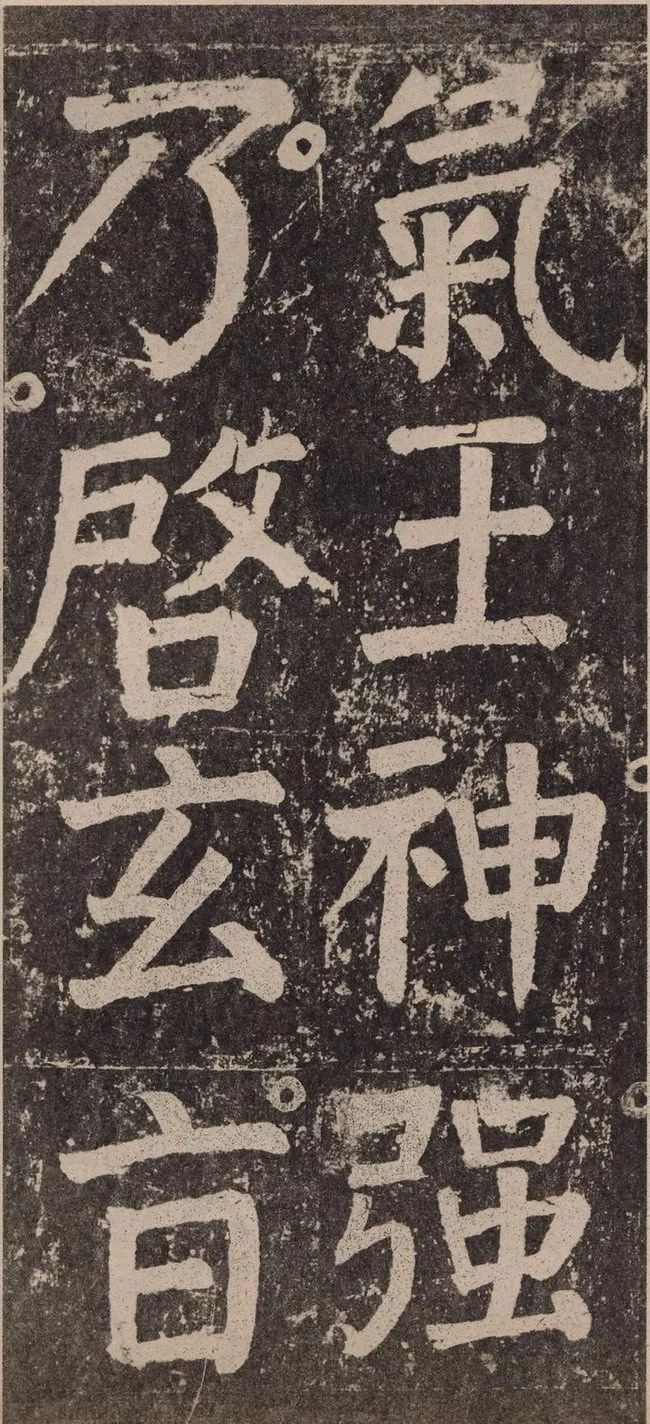 氣王神强
乃啓玄旨